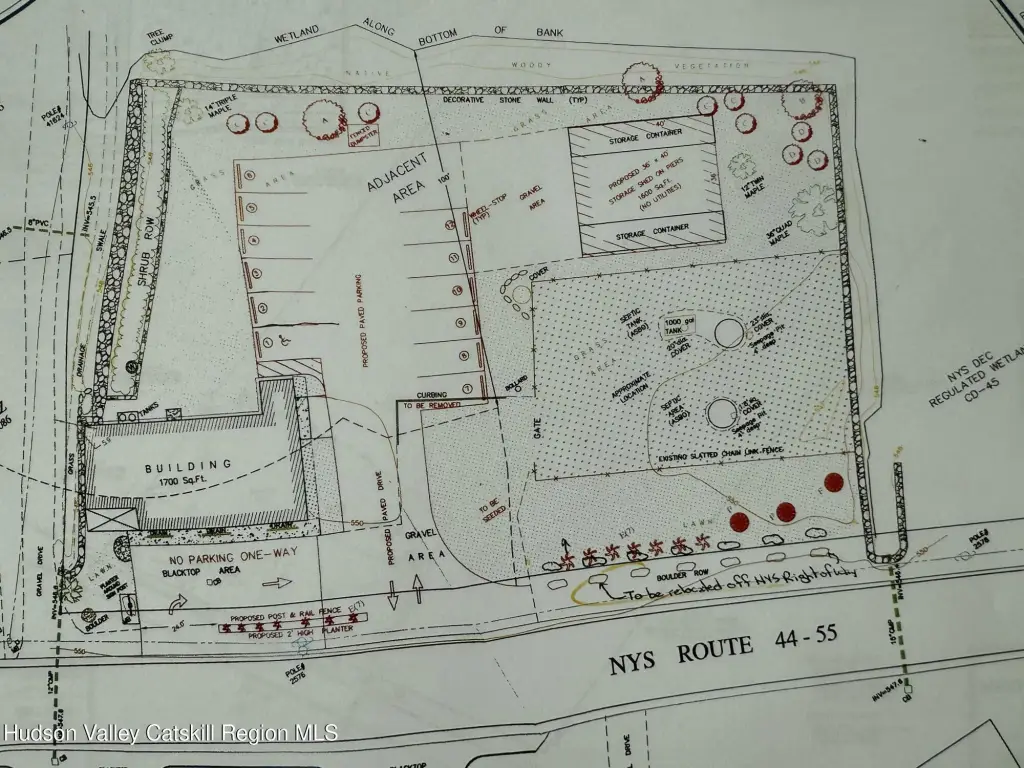 TREE
CLUMP
WETLAND ALONG BOTTOM OF BANK
NATIVE WOODY VEGETATION
DECORATIVE STONE WALL (TYP)
14" TRIPLE
MAPLE
POLE#
41624
FENCED
DUMPSTER
GRASS AREA
GRASS AREA
ADJACENT
AREA
100'
WHEEL-STOP
(TYP)
GRAVEL
AREA
40'
STORAGE CONTAINER
PROPOSED 36' x 40'
STORAGE SHED ON PIERS
1600 Sq.Ft.
(NO UTILITIES)
STORAGE CONTAINER
12" TWIN
MAPLE
36" QUAD
MAPLE
8" PVC
INV=545.5
SWALE
SHRUB ROW
DRAINAGE
PROPOSED PAVED PARKING
COVER
SEPTIC
TANK
(ASBG)
1000 gal
TANK
COVER
GRASS
AREA
APPROXIMATE
LOCATION
SEPTIC
AREA
(ASBG)
COVER
NYS DEC
REGULATED WETLAND
CD-45
BOLLARD
CURBING
TO BE REMOVED
GATE
EXISTING SLATTED CHAIN LINK FENCE
TANKS
BUILDING
1700 Sq.Ft.
GRASS
550
PROPOSED PAVED DRIVE
TO BE
SEEDED
GRAVEL
AREA
LAWN
E(7)
NO PARKING ONE-WAY
BLACKTOP AREA
GRAVEL DRIVE
LAWN
BOULDER
24.5'
BOULDER ROW
To be relocated off NYS Right of Way
PROPOSED POST & RAIL FENCE
E(7)
PROPOSED 2' HIGH PLANTER
POLE#
2576
POLE#
2578
550
NYS ROUTE 44-55
12" CMP
15" CMP
INV=547.6
DRIVE
BLACKTOP
Hudson Valley Catskill Region MLS